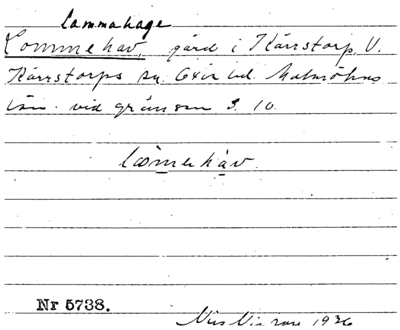 Lammahage
Lommehav, gård i Kärrstorp, V.
Kärrstorps sn. Oxie hd. Malmöhus
län. vid gränsen S. 10.
lömehav
Nr 5738.
Nils 1926